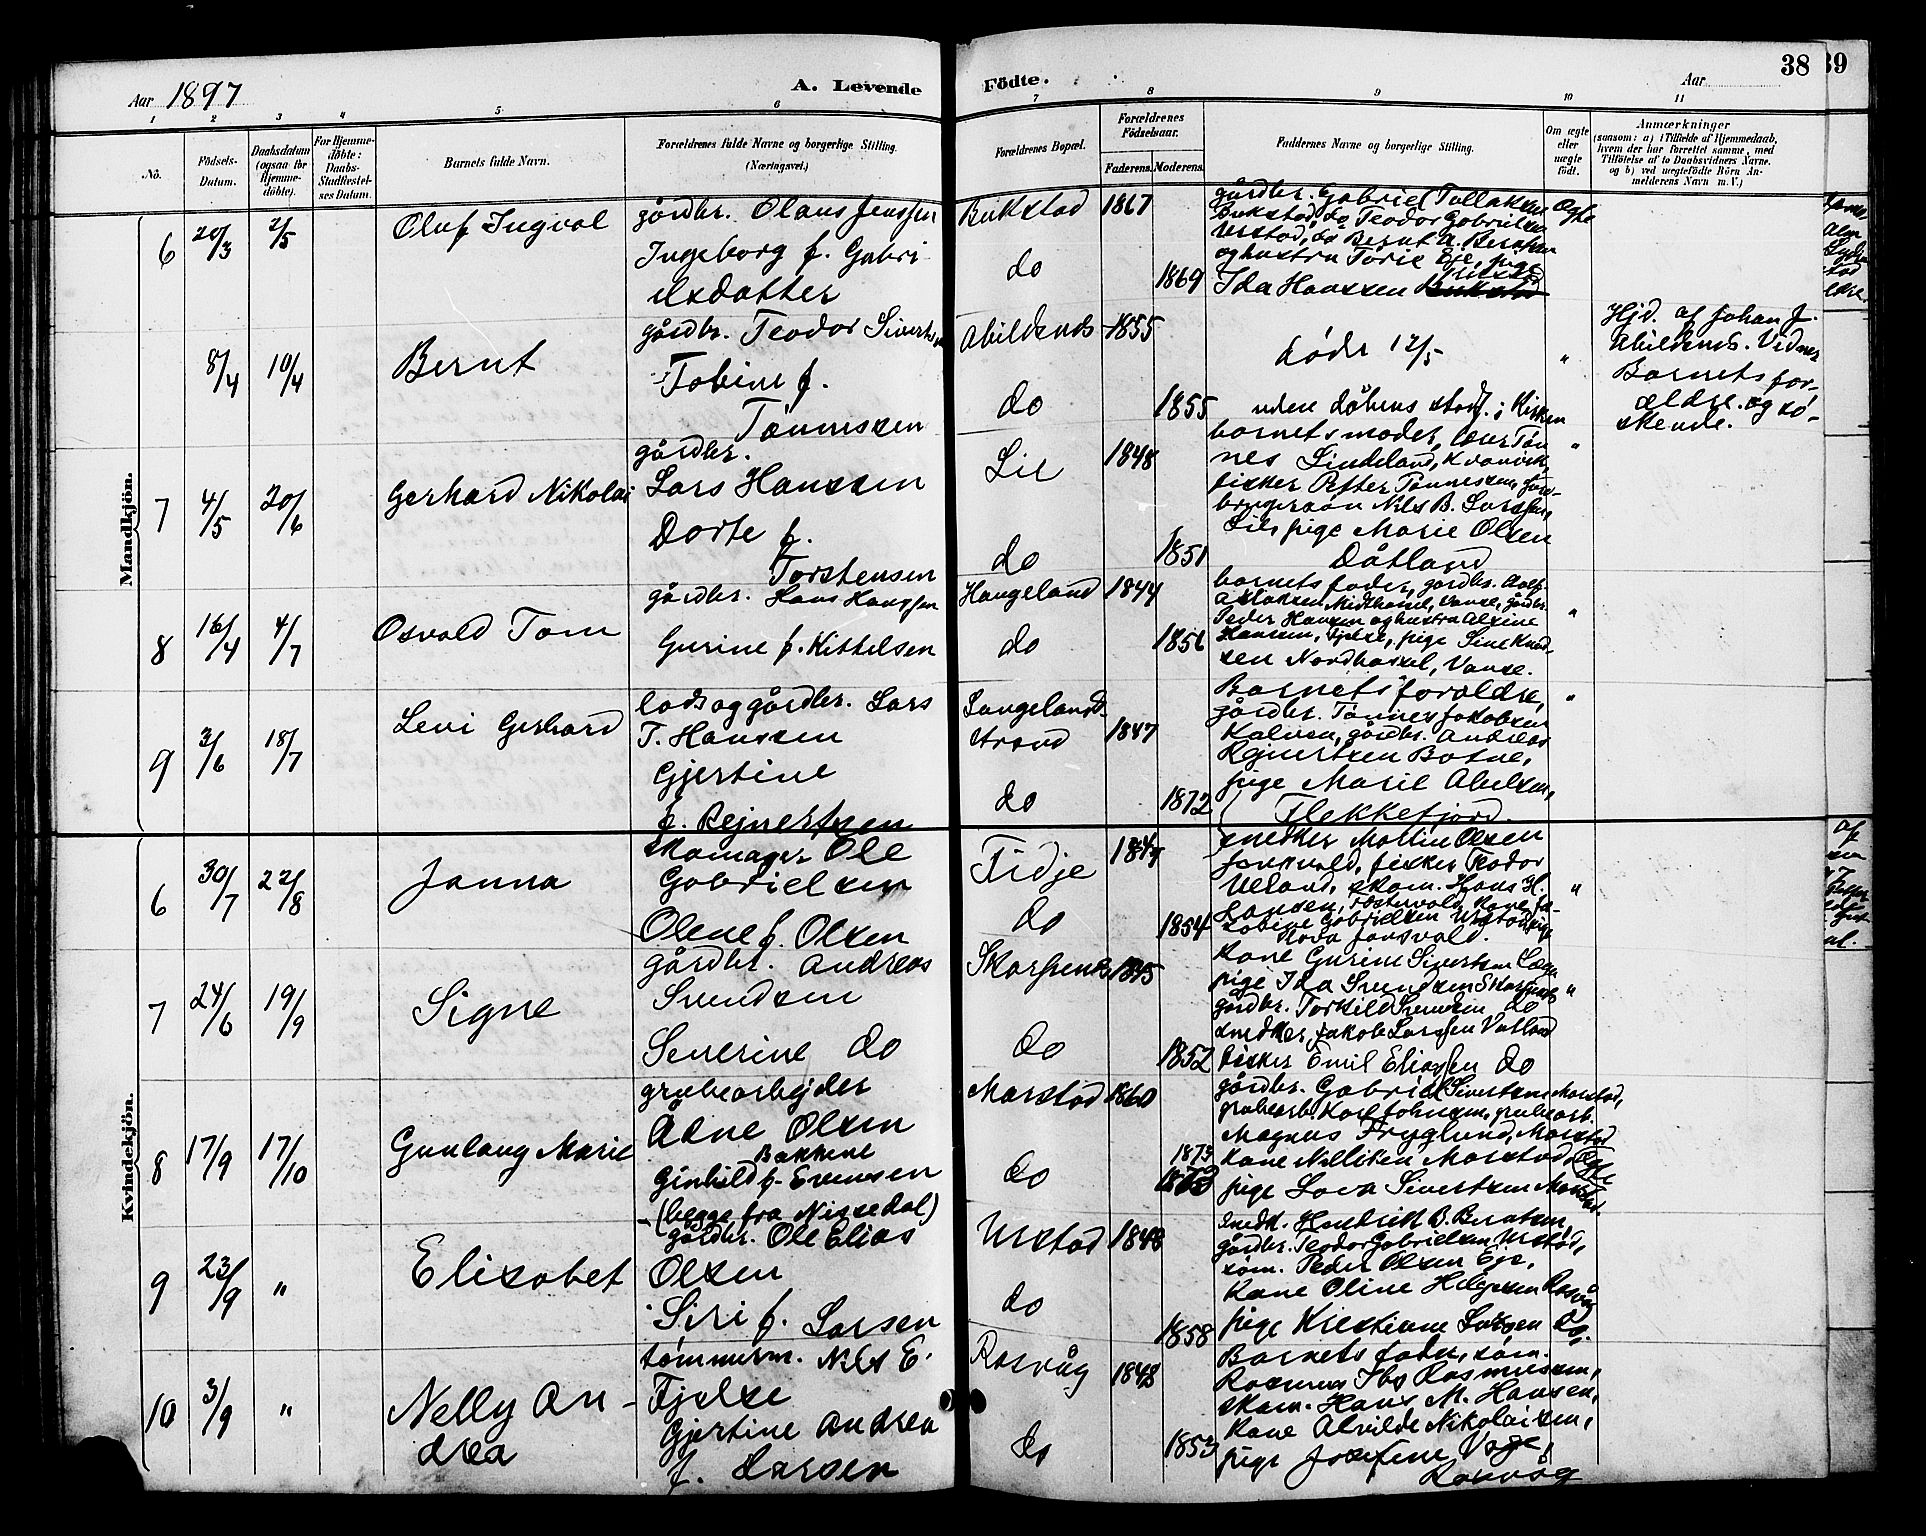 Aar 1897
A. Levende
Födte.
Aar
38
39
1
2
3
4
5
6
7
8
9
10
11
No.
Födsels-
Datum.
Daabsdatum
(ogsaa for
Hjemme-
döbte).
For Hjemme-
döbte:
Daabs-
Stadfæstel-
ses Datum.
Barnets fulde Navn.
Forældrenes fulde Navne og borgerlige Stilling.
(Næringsvei.)
Forældrenes Bopæl.
Forældrenes
Födselsaar.
Faderens.
Moderens.
Faddernes Navne og borgerlige Stilling.
Om ægte
eller
uægte
födt.
Anmærkninger
(saasom: a) i Tilfælde af Hjemmedaab,
hvem der har forrettet samme, med
Tilföielse af to Daabsvidners Navne.
og b) ved uegtefödte Börn An-
melderens Navn m. V.)
Mandkjön.
6 20/3 2/5 Oluf Ingval
gårdbr. Olaus Jenssen
Ingeborg f. Gabri-
elsdatter
Bukstad 1867
do 1869
gårdbr. Gabriel Tollaksen
Bukstad, do Teodor Gabrielsen
Urstad, do Bernt A. Berntsen
og hustru Torie Eje, pige
Ida Hanssen
Ægte
8/4 10/4 Bernt
gårdbr. Teodor Sivertsen
Tobine f.
Tønnessen
Abildsnes 1855
do 1855
døde 12/5
uden dåbens stadf. i Kirken
"
Hjd. af Johan J.
Abildsnes. Vidner
Barnets for-
ældre og sø-
skende.
7 4/5 20/6 Gerhard Nikolai
gårdbr.
Lars Hanssen
Dorte f.
Torstensen
Lie 1848
do 1851
barnets moder, Tøn-
nes Lindeland, Kvanvik,
fisker Petter Tønnessen, gård-
brugersøn Nils B. Larssen,
Lie, pige Marie Olsen
Dåtland
"
8 16/4 4/7 Osvald Tom
gårdbr. Hans Hanssen
Gurine f. Kittelsen
Haugeland 1844
do 1856
barnets fader, gårdbr.
Aslaksen Midthassel, Vanse, gårdbr.
Peder Hansen og hustru Alxine
Hansen, Fjelse, pige Sine Knud-
sen Nordhassel, Vanse.
"
9 3/6 18/7 Levi Gerhard
lods og gårdbr. Lars
T. Hanssen
Gjertine
f. Rejnertsen
Langelands-
strand 1847
do 1872
Barnets foraldre,
gårdbr. Tønnes Jakobsen
Kalven, gårdbr. Andreas
Rejnertsen Botne,
pige Marie Abelsen,
Flekkefjord.
"
Kvindekjön.
6 30/7 22/8 Janna
skomager Ole
Gabrielsen
Olene f. Olsen
Fidje
do 1854
snedker Mattin Olsen
fisker Teodor
Ueland, skom. Hans H.
Hansen, Kane Ja-
kobine Gabrielsen Urstad, pige
"
7 24/6 19/9 Signe
gårdbr. Andreas
Svendsen
Severine do
Skarpenes 1845
do 1852
Kane Gurine Sivertsen
pige Ida Svendsen Skarpenes
gårdbr. Torkild Svendsen do
snedker Jakob Larssen Vatland
fisker Emil Eliassen do
"
8 17/9 17/10 Gunlaug Marie
grubearbejder
Ådne Olsen
Bakkene
Ginhild f. Evensen
(begge fra Nissedal)
Marstad 1860
do 1873
gårdbr. Gabriel Sivertsen Marstad,
grubearb. Karl Johnsen, grubearb.
Magnus Fryglund, Marstad
Kane Nilliken Marstad,
pige Lova Sivertsen
9 23/9 " Elisabet
gårdbr. Ole Elias
Olsen
Siri f. Larsen
Urstad 1848
do 1858
snedk. Hendrik B. Berntsen,
gårdbr. Teodor Gabrielsen Urstad,
søm. Peder Olsen Eje,
Kane Oline Helgesen Rasvåg
pige Kristiane Larsen do.
10 3/9 " Nelly An-
drea
tømmerm. Nils E.
Fjelse
Gjertine Andrea
f. Larsen
Rasvåg 1848
do 1853
Barnets fader, søm.
Rasmus Ibs Rasmussen,
skom. Hans M. Hansen,
Kane Alvilde Nikolaisen,
pige Josefine Vage,
Rasvåg